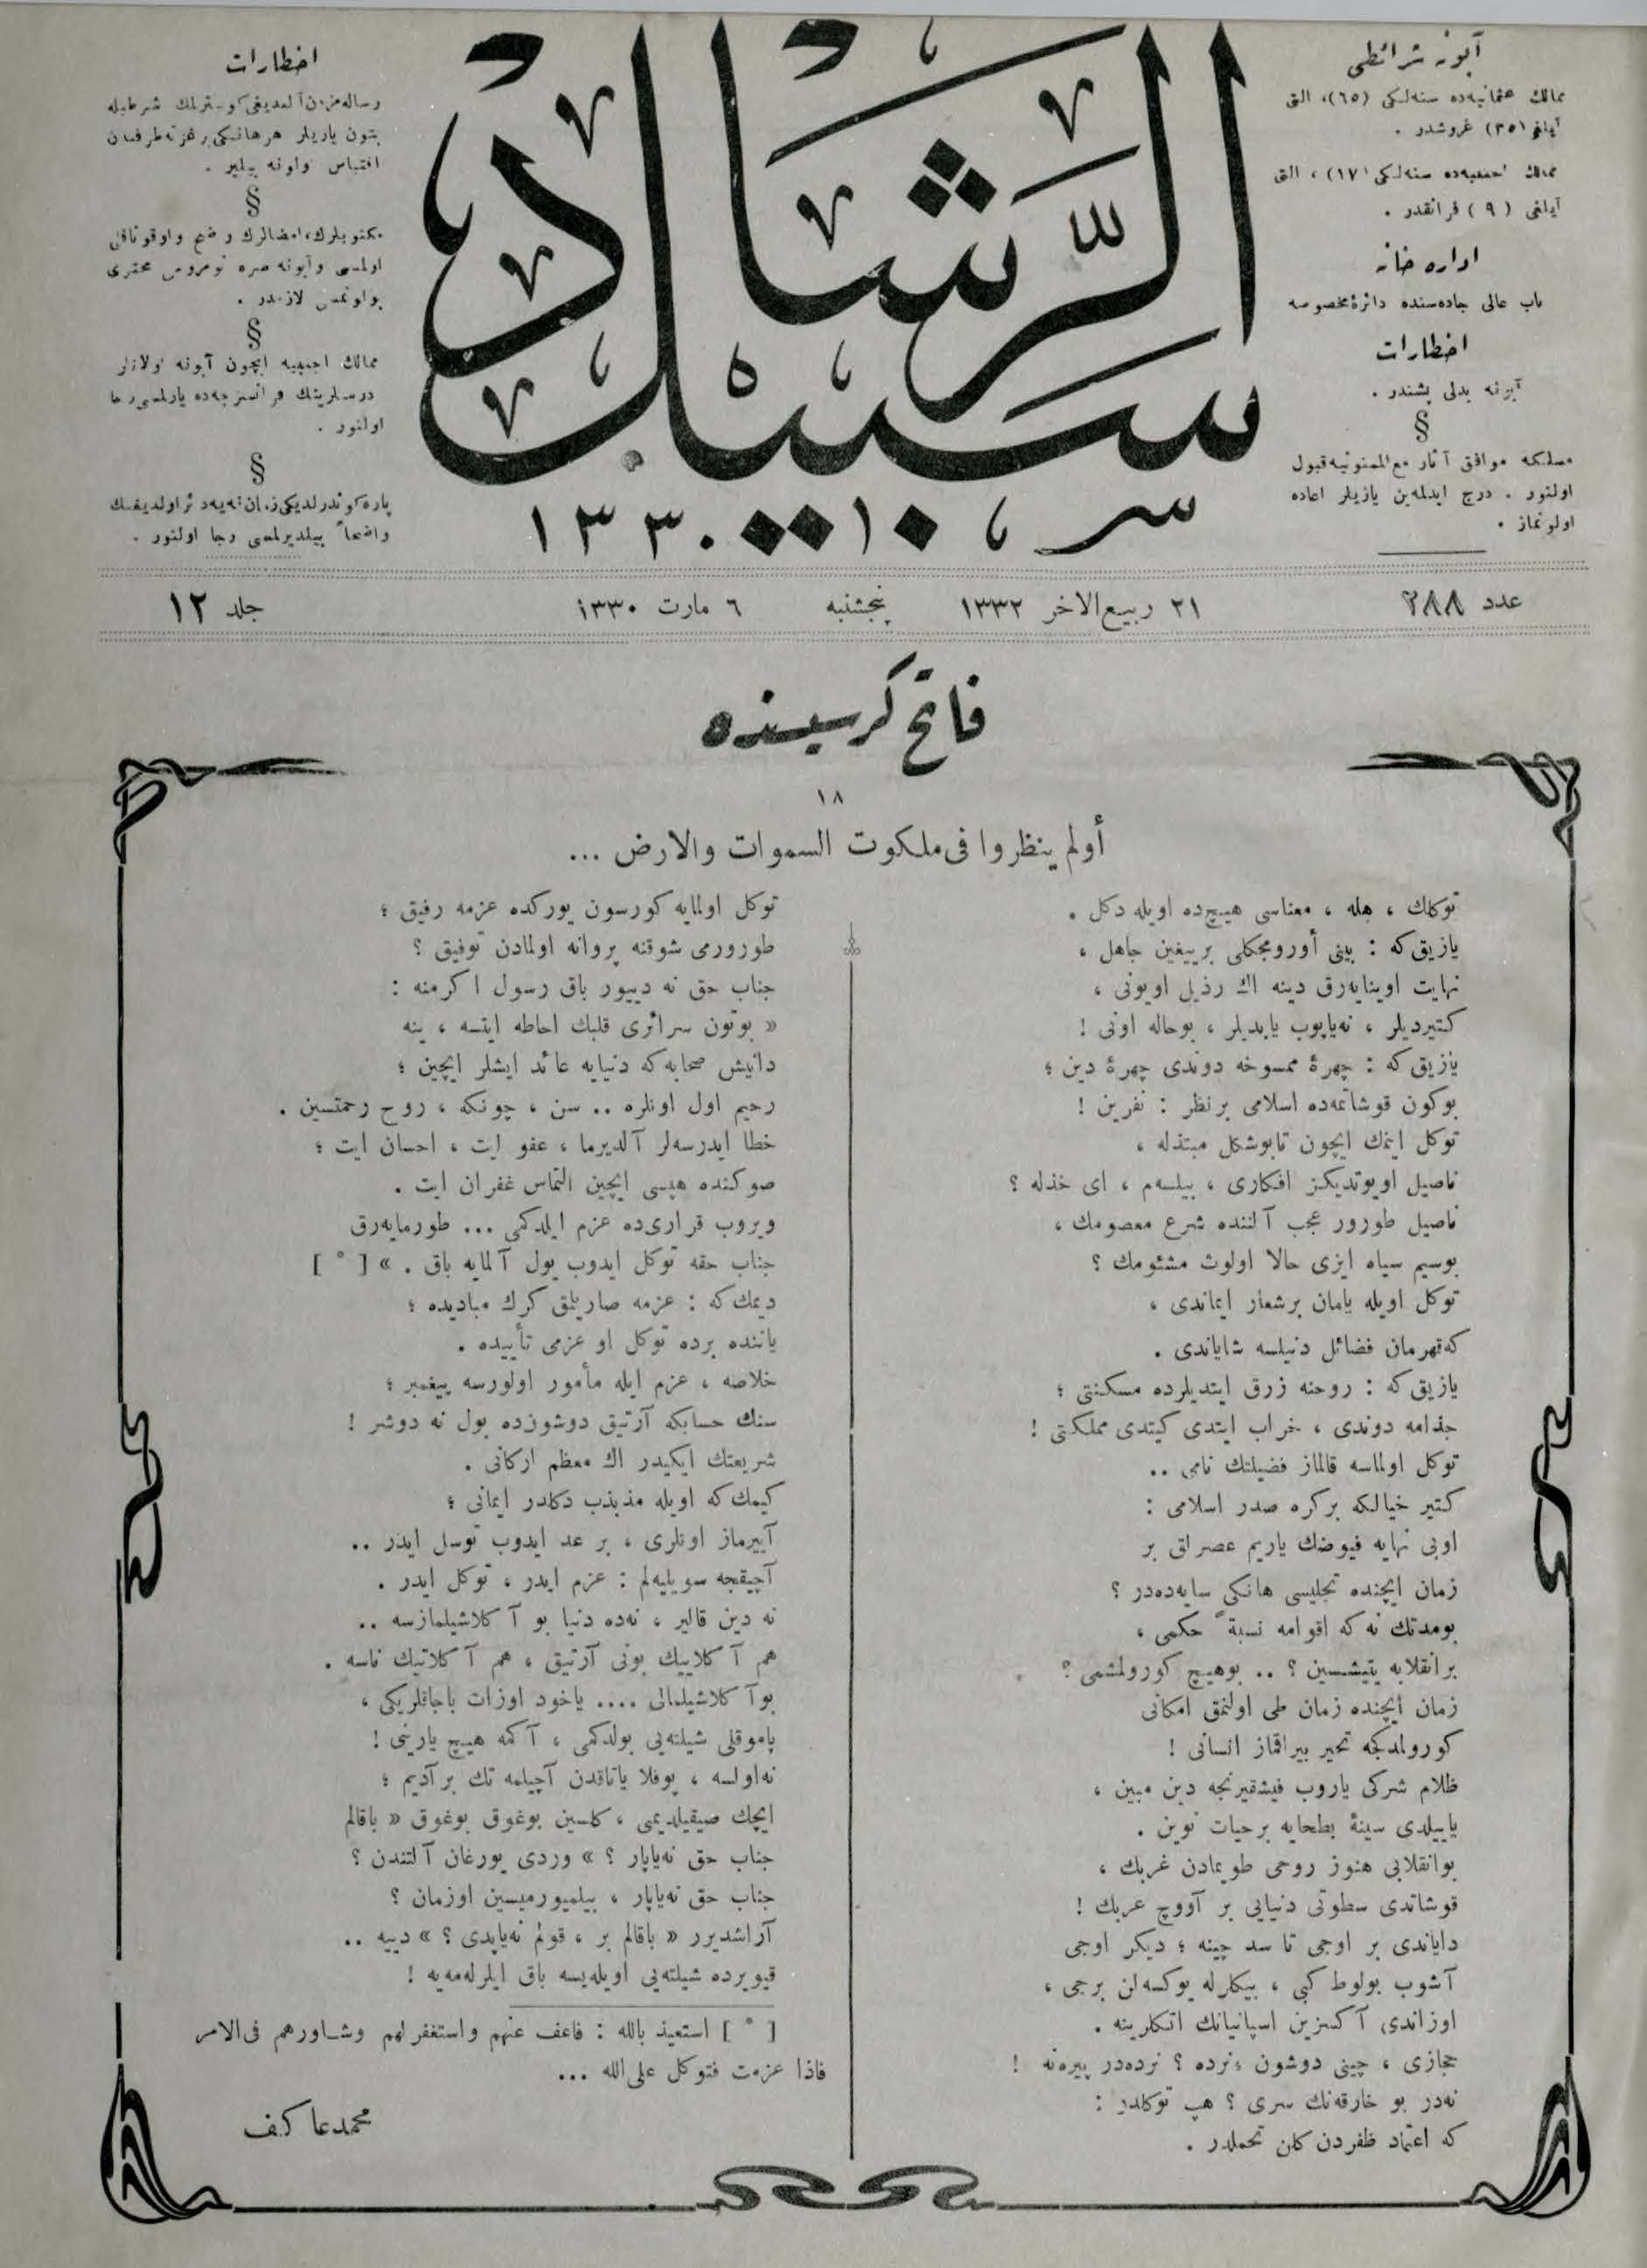 آبونه شرائطی
ممالك عثمانیه‌ده سنه‌لكی (٦٥)، التی
آیلغی (٣٥) غروشدر .
ممالك اجنبیه‌ده سنه‌لكی (١٧) ، التی
آیلغی ( ٩ ) فرانقدر .
اداره خانه
باب عالی جاده‌سنده دائرهٔ مخصوصه
اخطارات
آبونه بدلی پشندر .
§
مسلكه موافق آثار مع‌الممنونیه قبول
اولنور . درج ایدلمه‌ین یازیلر اعاده
اولونماز .
سبیل الرشاد
سر
١٣٣٠
اخطارات
رساله‌مزدن آلندیغی كوسترلمك شرطیله
بتون یازیلر هر هانكی بر غزته طرفندن
اقتباس اولونه بیلیر .
§
مكتوبلرك، امضالرك واضح و اوقوناقلی
اولمسی و آبونه صره نومروسی محتوی
بولونمسی لازمدر .
§
ممالك اجنبیه ایچون آبونه اولانلر
درسلرینك فرانسزجه‌ده یازلمسی رجا
اولنور .
§
پاره كوندرلدیكی زمان نه‌یه‌دائر اولدیغنك
واضحاً بیلدیرلمسی رجا اولنور .
عدد ٢٨٨
٢١ ربیع‌الاخر ١٣٣٢
پنجشنبه
٦ مارت ١٣٣٠
جلد ١٢
فاتح كرسیسنده
١٨
أولم ینظروا فی ملكوت السموات والارض ...
توكلك ، هله ، معناسی هیچ‌ده اویله دكل .
یازیق‌كه : بینی أورومجكلی برییغین جاهل ،
نهایت اوینایه‌رق دینه اك رذیل اویونی ،
كتیردیلر ، نه‌یاپوب یابدیلر ، بوحاله اونی !
یازیق‌كه : چهرهٔ ممسوخه دوندی چهرهٔ دین ؛
بوكون قوشاتمه‌ده اسلامی برنظر : نفرین !
توكل ایتمك ایچون تابوشكل مبتذله ،
ناصیل اویوتدیكز افكاری ، بیلسه‌م ، ای خذله ؟
ناصیل طورور عجب آلننده شرع معصومك ،
بوسیم سیاه ایزی حالا اولوث مشئومك ؟
توكل اویله یامان برشعار ایماندی ،
كه‌قهرمان فضائل دنیلسه شایاندی .
یازیق‌كه : روحنه زرق ایتدیلرده مسكنتی ؛
جذامه دوندی ، خراب ایتدی كیتدی مملكتی !
توكل اولماسه قالماز فضیلتك نامی ..
كتیر خیالكه بركره صدر اسلامی :
اوبی نهایه فیوضك یاریم عصرلق بر
زمان ایچنده تجلیسی هانكی سایه‌ده‌در ؟
بومدتك نه كه اقوامه نسبةً حكمی ،
برانقلابه یتیشسین ؟ .. بوهیچ كورولمشمی ؟
زمان ایچنده زمان طی اولنمق امكانی
كورولدكجه تحیر بیراقماز انسانی !
ظلام شركی یاروب فیشقیرنجه دین مبین ،
یاییلدی سینهٔ بطحایه برحیات نوین .
بوانقلابی هنوز روحی طویمادن غربك ،
قوشاتدی سطوتی دنیایی بر آووچ عربك !
دایاندی بر اوجی تا سد چینه ؛ دیكر اوجی
آشوب بولوط كبی ، بیكلرله یوكسه‌لن برجی ،
اوزاندی آكسزین اسپانیانك اتكلرینه .
حجازی ، چینی دوشون نرده ؟ نرده‌در پیره‌نه !
نه‌در بو خارقه‌نك سری ؟ هپ توكلدر :
كه اعتماد ظفردن كلن تحملدر .
توكل اولمایه كورسون یوركده عزمه رفیق ؛
طورورمی شوقنه پروانه اولمادن توفیق ؟
جناب حق نه دییور باق رسول اكرمنه :
« بوتون سرائری قلبك احاطه ایتسه ، ینه
دانیش صحابه‌كه دنیایه عائد ایشلر ایچین ؛
رحیم اول اونلره .. سن ، چونكه ، روح رحمتسین .
خطا ایدرسه‌لر آلدیرما ، عفو ایت ، احسان ایت ؛
صوكنده هپسی ایچین التماس غفران ایت .
ویروب قراری‌ده عزم ایلدكمی ... طورمایه‌رق
جناب حقه توكل ایدوب یول آلمایه باق . » [ * ]
دیمك‌كه : عزمه صاریلمق كرك مبادیده ؛
یاننده برده توكل او عزمی تأییده .
خلاصه ، عزم ایله مأمور اولورسه پیغمبر ؛
سنك حسابكه آرتیق دوشوزده بول نه دوشر !
شریعتك ایكیدر اك معظم اركانی .
كیمك‌كه اویله مذبذب دكلدر ایمانی ؛
آییرماز اونلری ، بر عد ایدوب توسل ایدر ..
آچیقجه سویلیه‌لم : عزم ایدر ، توكل ایدر .
نه دین قالیر ، نه‌ده دنیا بو آكلاشیلمازسه ..
هم آكلاییك بونی آرتیق ، هم آكلاتیك ناسه .
بوآكلاشیلمالی .... یاخود اوزات باجاقلریكی ،
پاموقلی شیلته‌یی بولدكمی ، آكمه هیچ یارینی !
نه‌اولسه ، یوفلا یاتاقدن آچیلمه تك برآدیم ؛
ایچك صیقیلدیمی ، كلسین بوغوق بوغوق « باقالم
جناب حق نه‌یاپار ؟ » وردی یورغان آلتندن ؟
جناب حق نه‌یاپار ، بیلمیورمیسین اوزمان ؟
آراشدیرر « باقالم بر ، قولم نه‌یاپدی ؟ » دییه ..
قیویرده شیلته‌یی اویله‌یسه باق ایلرله‌مه‌یه !
[ * ] استعیذ بالله : فاعف عنهم واستغفر لهم وشاورهم فی‌الامر
فاذا عزمت فتوكل علی‌الله ...
محمدعاكف